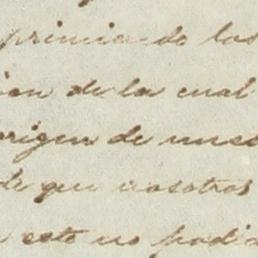 primiendo los
ion de la cual
origen de nues
de que nosotros
esto no podia